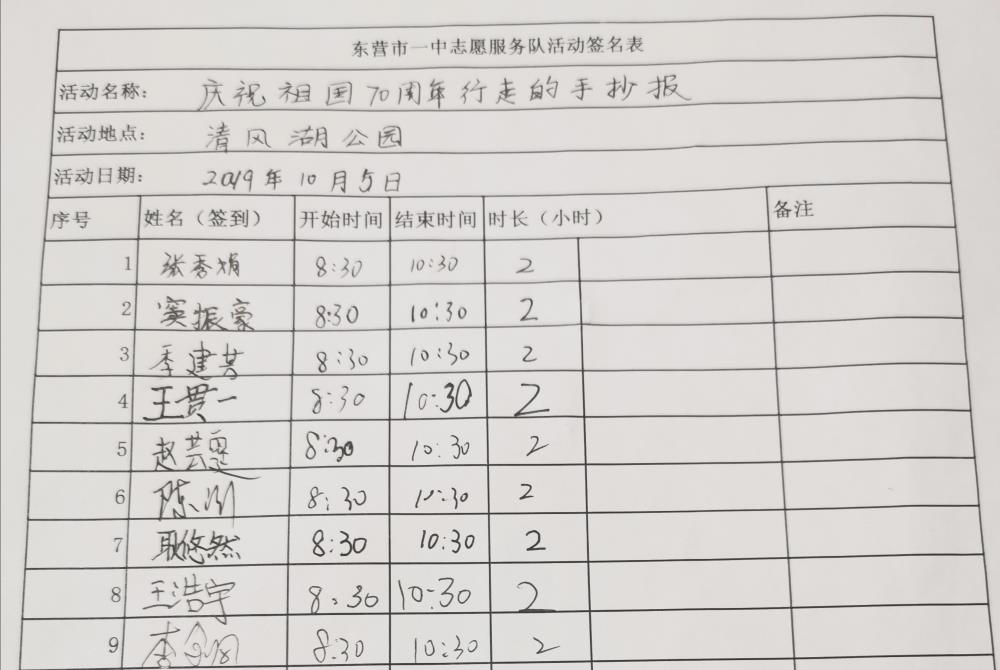 东营市一中志愿服务队活动签名表
活动名称： 庆祝祖国70周年行走的手抄报
活动地点： 清风湖公园
活动日期： 2019年10月5日
序号 姓名（签到） 开始时间 结束时间 时长（小时） 备注
1 张秀娟 8:30 10:30 2
2 窦振豪 8:30 10:30 2
3 季建芸 8:30 10:30 2
4 王贯一 8:30 10:30 2
5 赵芸 8:30 10:30 2
6 陈 8:30 10:30 2
7 耿悠然 8:30 10:30 2
8 王浩宇 8:30 10:30 2
9 李 8:30 10:30 2